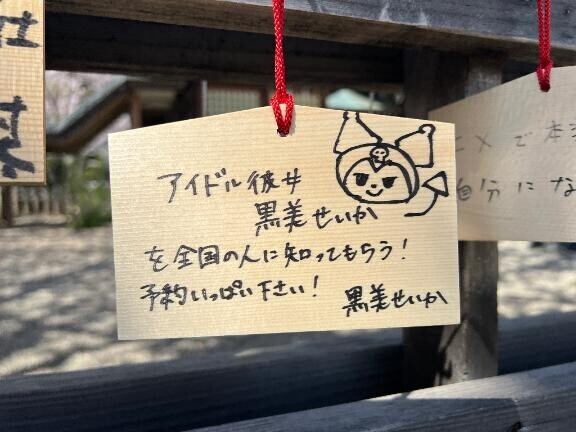 アイドル彼女
黒美せいか
を全国の人に知ってもらう!
予約いっぱい下さい!
黒美せいか
メで本
自分にな